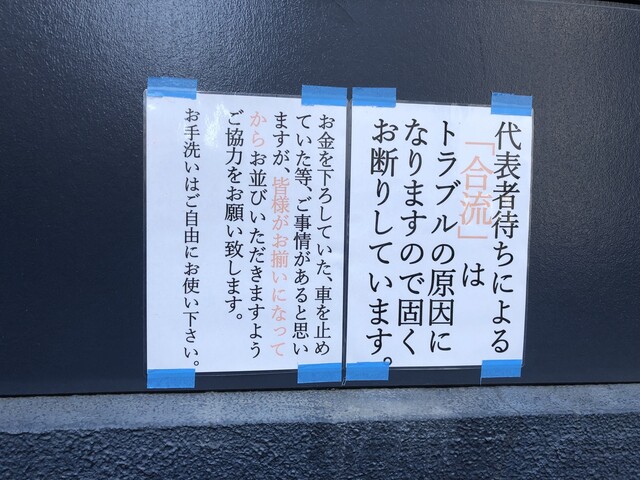 代表者待ちによる
「合流」は
トラブルの原因に
なりますので固く
お断りしています。
お金を下ろしていた、車を止め
ていた等、ご事情があると思い
ますが、皆様がお揃いになって
からお並びいただきますよう
ご協力をお願い致します。
お手洗いはご自由にお使い下さい。